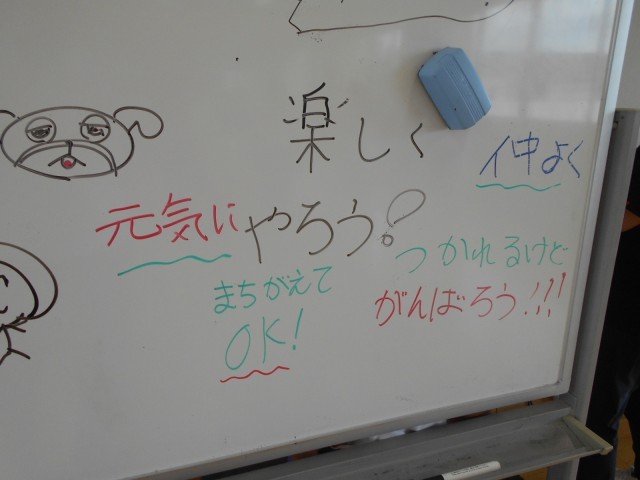 楽しく
仲よく
元気にやろう!
まちがえて
OK!
つかれるけど
がんばろう!!!